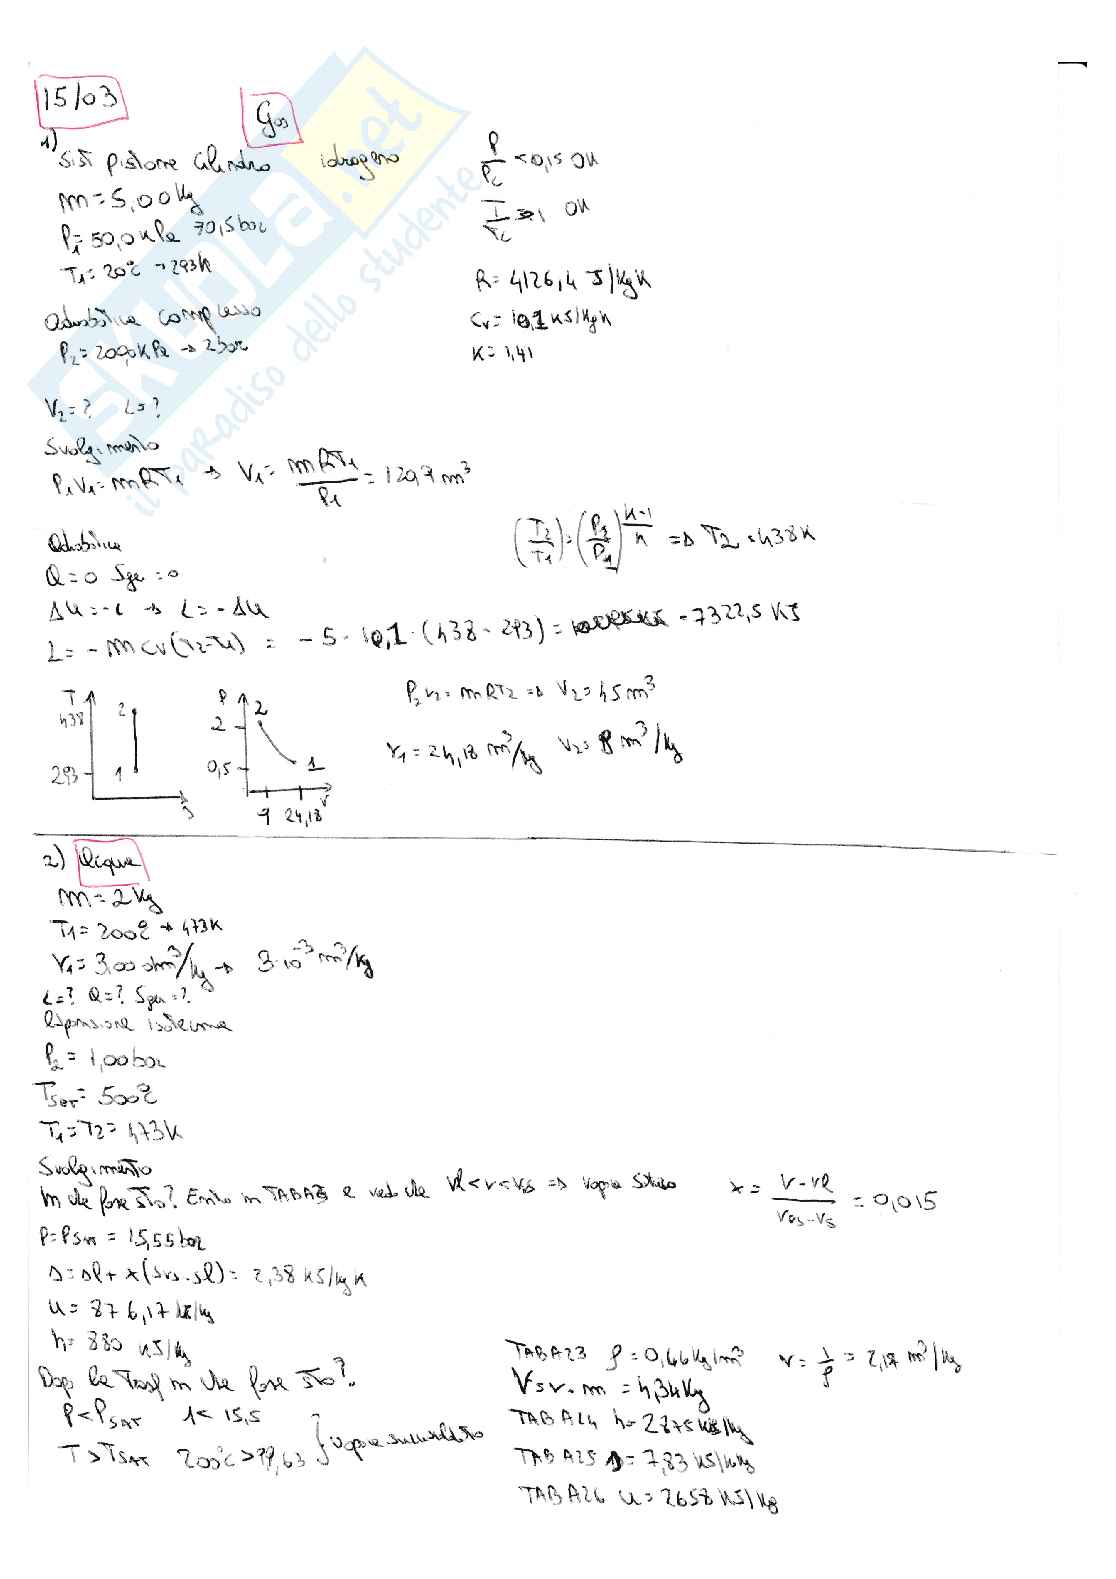 15/03
Gas
1) Sist pistone cilindro idrogeno
m = 5,00 kg
P1 = 50,0 kPa → 0,5 bar
T1 = 20°C → 293 K
Adiabatica compresso
P2 = 200,0 kPa → 2 bar
P/Pc < 0,15 OK
T/Tc > 1 OK
R = 4126,4 J/kg K
Cv = 10,1 kJ/kg K
K = 1,41
V2 = ? L = ?
Svolgimento
P1V1 = mRT1 → V1 = mRT1/P1 = 120,7 m³
Adiabatica
Q = 0 Sge = 0
ΔU = -L → L = -ΔU
(T2/T1) = (P2/P1)^(k-1/k) ⇒ T2 = 438 K
L = -m cv (T2-T1) = -5 · 10,1 · (438 - 293) = -7322,5 kJ
P2V2 = mRT2 ⇒ V2 = 45 m³
v1 = 24,18 m³/kg v2 = 9 m³/kg
T
438
2
293
1
s
P
2
2
0,5
1
9 24,18
v
2) Acqua
m = 2 kg
T1 = 200°C → 473 K
v1 = 3,00 dm³/kg → 3·10⁻³ m³/kg
L = ? Q = ? Sgen = ?
Espansione isoterma
P2 = 1,00 bar
Tser = 500°C
T1 = T2 = 473 K
Svolgimento
In che fase sto? Entro in TAB A e vedo che vl < v < vvs ⇒ vapore saturo
x = v - vl / vvs - vs = 0,015
P = Psat = 15,55 bar
s = sl + x(svs - sl) = 2,38 kJ/kg K
u = 876,17 kJ/kg
h = 880 kJ/kg
Dopo la trasf in che fase sto?
P < PSAT 1 < 15,5
T > TSAT 200°C > 99,63 } vapore surriscaldato
TAB A23 ρ = 0,46 kg/m³ v = 1/ρ = 2,17 m³/kg
V = v · m = 4,34 kg
TAB A24 h = 2875 kJ/kg
TAB A25 s = 7,83 kJ/kg
TAB A26 u = 2658 kJ/kg
SKUOLA.net
il paradiso dello studente